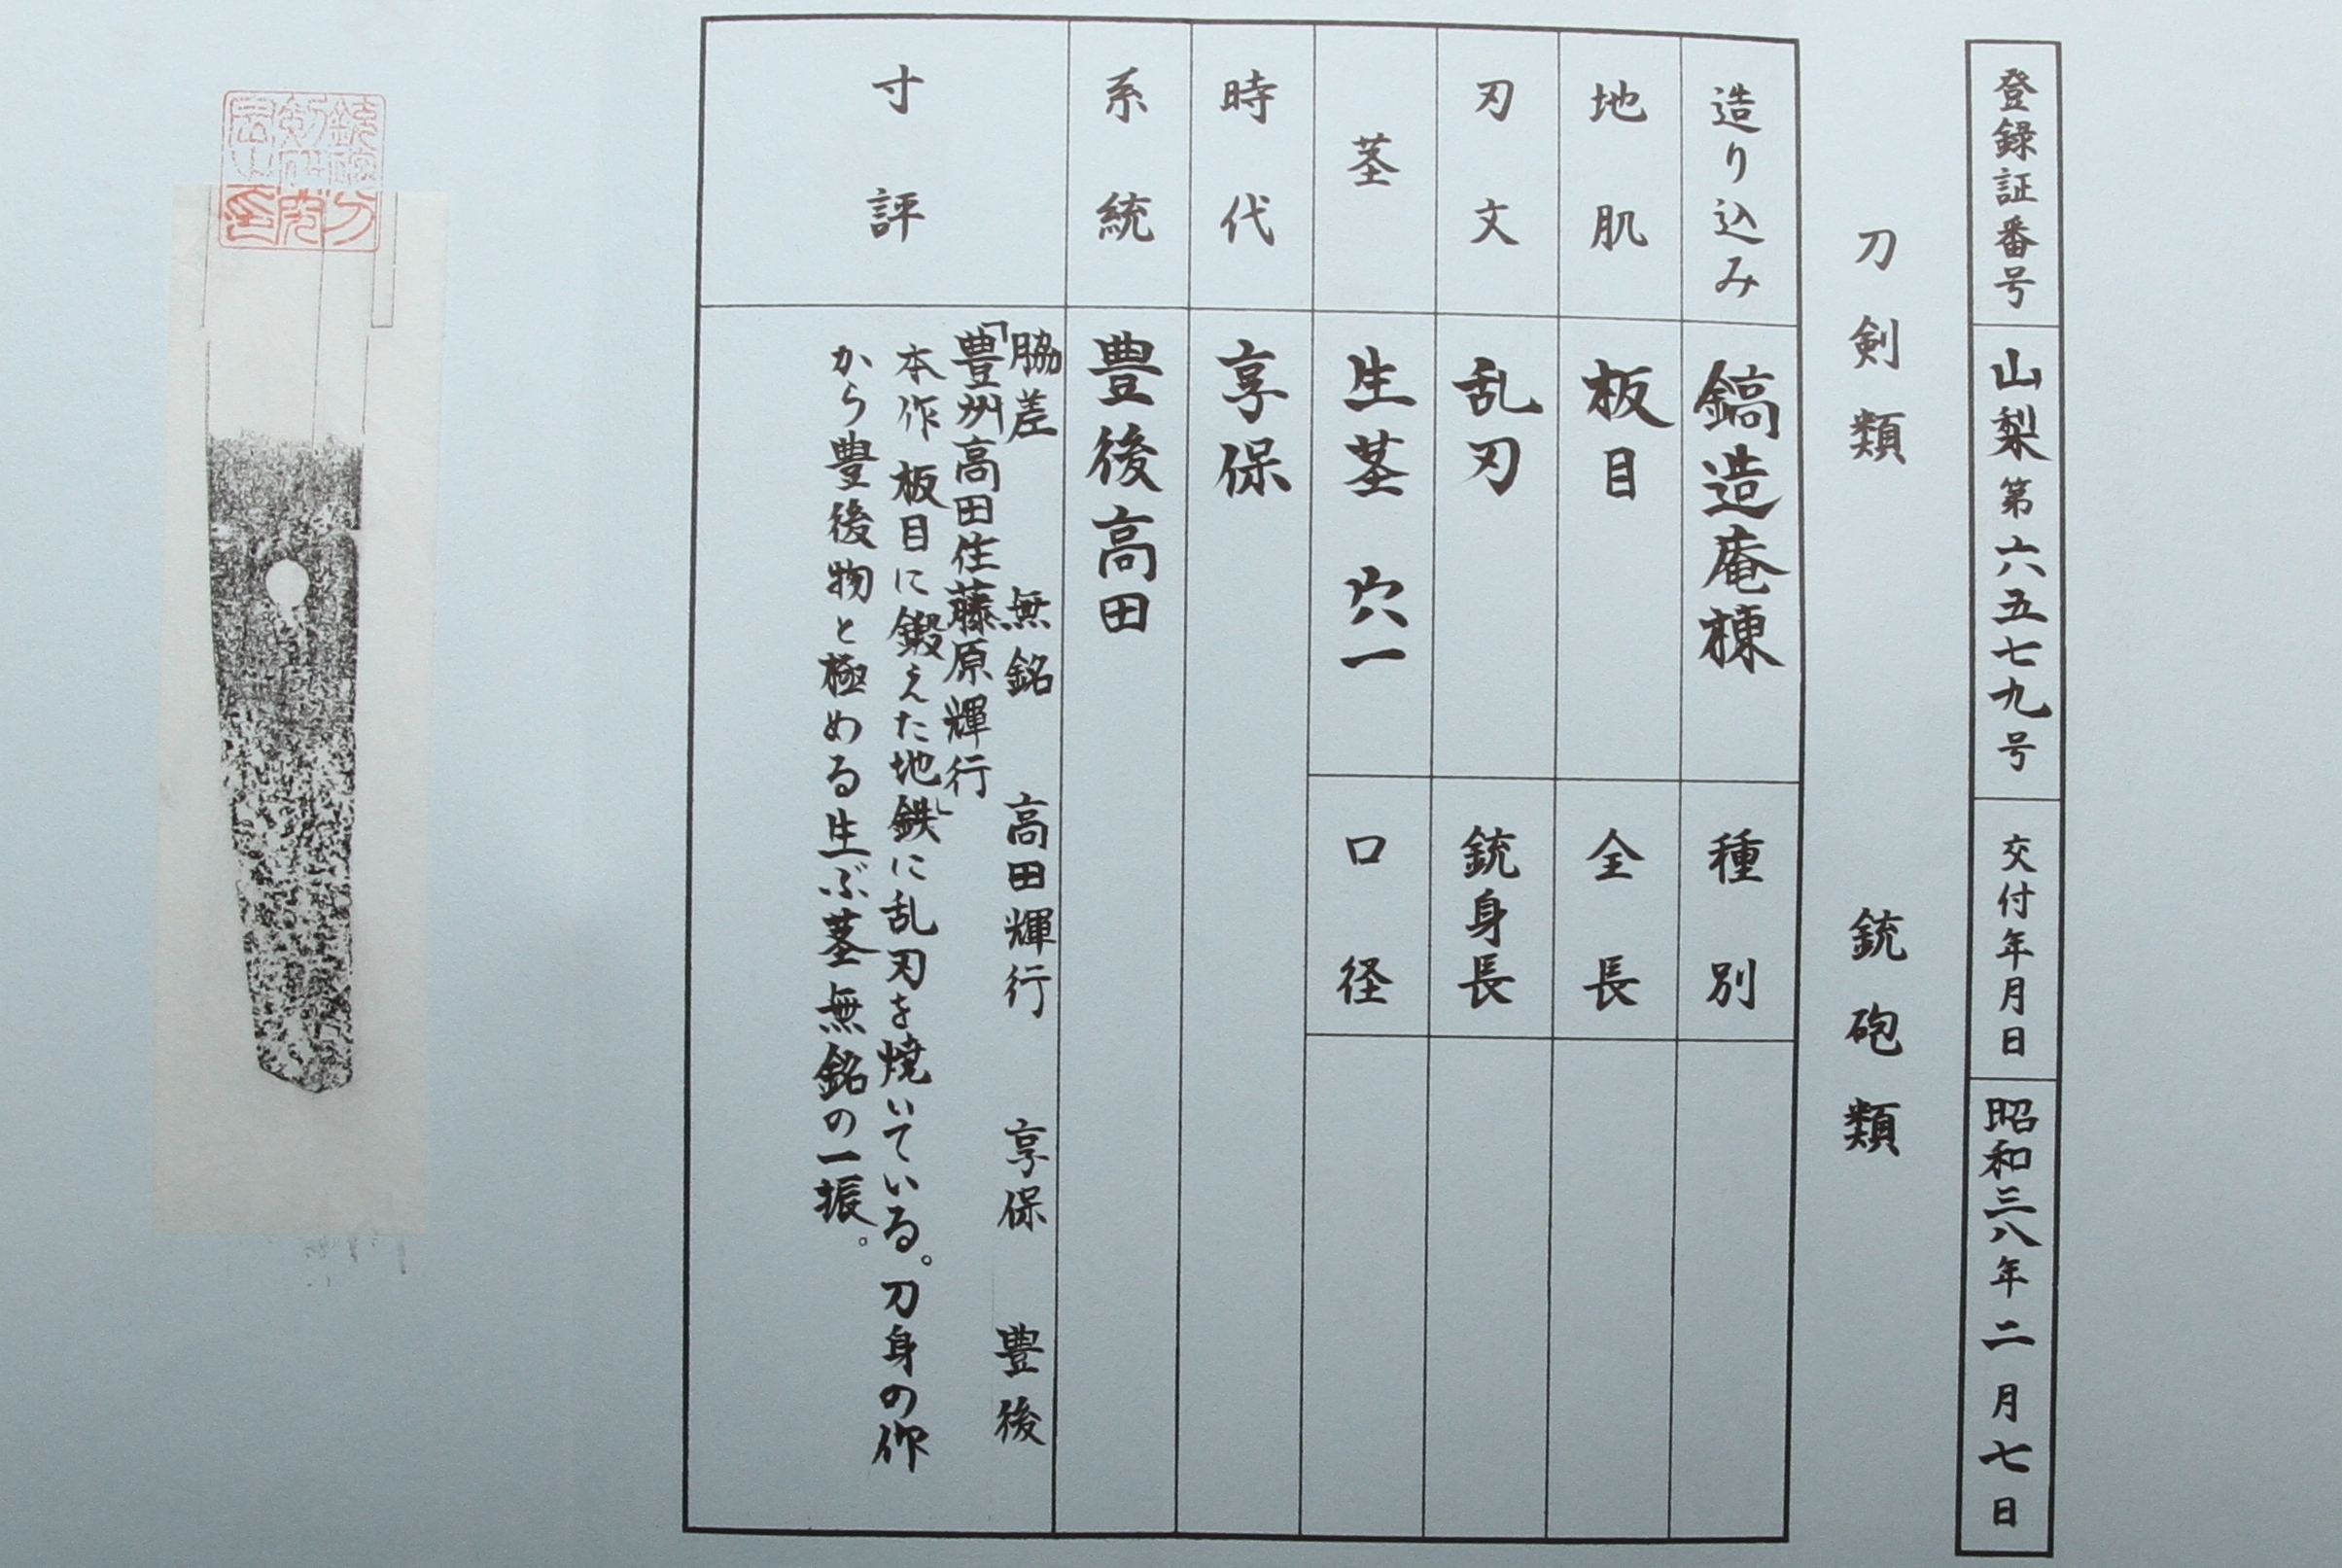 登録証番号 山梨第六五七九号 交付年月日 昭和三八年二月七日
刀剣類 銃砲類
造り込み 鎬造庵棟 種別
地肌 板目 全長
刃文 乱刃 銃身長
茎 生茎 穴一 口径
時代 享保
系統 豊後高田
寸評
脇差 無銘 高田輝行 享保 豊後
「豊州高田住藤原輝行」
本作板目に鍛えた地鉄に乱刃を焼いている。刀身の作
から豊後物と極める生ぶ茎無銘の一振。